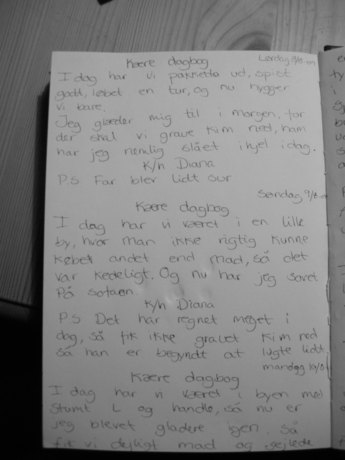 Kære dagbog Lørdag 8/8-09
I dag har vi pakket ud, spist
godt, løbet en tur, og nu hygger
vi bare.
Jeg glæder mig til i morgen, for
der skal vi grave Kim ned, ham
har jeg nemlig slået ihjel i dag.
K/h Diana
P.S Far blev lidt sur
Søndag 9/8-09
Kære dagbog
I dag har vi været i en lille
by, hvor man ikke rigtig kunne
købet andet end mad, så det
var kedeligt. Og nu har jeg sovet
På sofaen.
K/h Diana
P.S Det har regnet meget i
dag, så fik ikke gravet Kim ned
så han er begyndt at lugte lidt.
mandag 10/8
Kære dagbog
I dag har vi været i byen med
L og handle, så nu er
jeg blevet gladere igen. Så
fik vi dejligt mad og sejlede